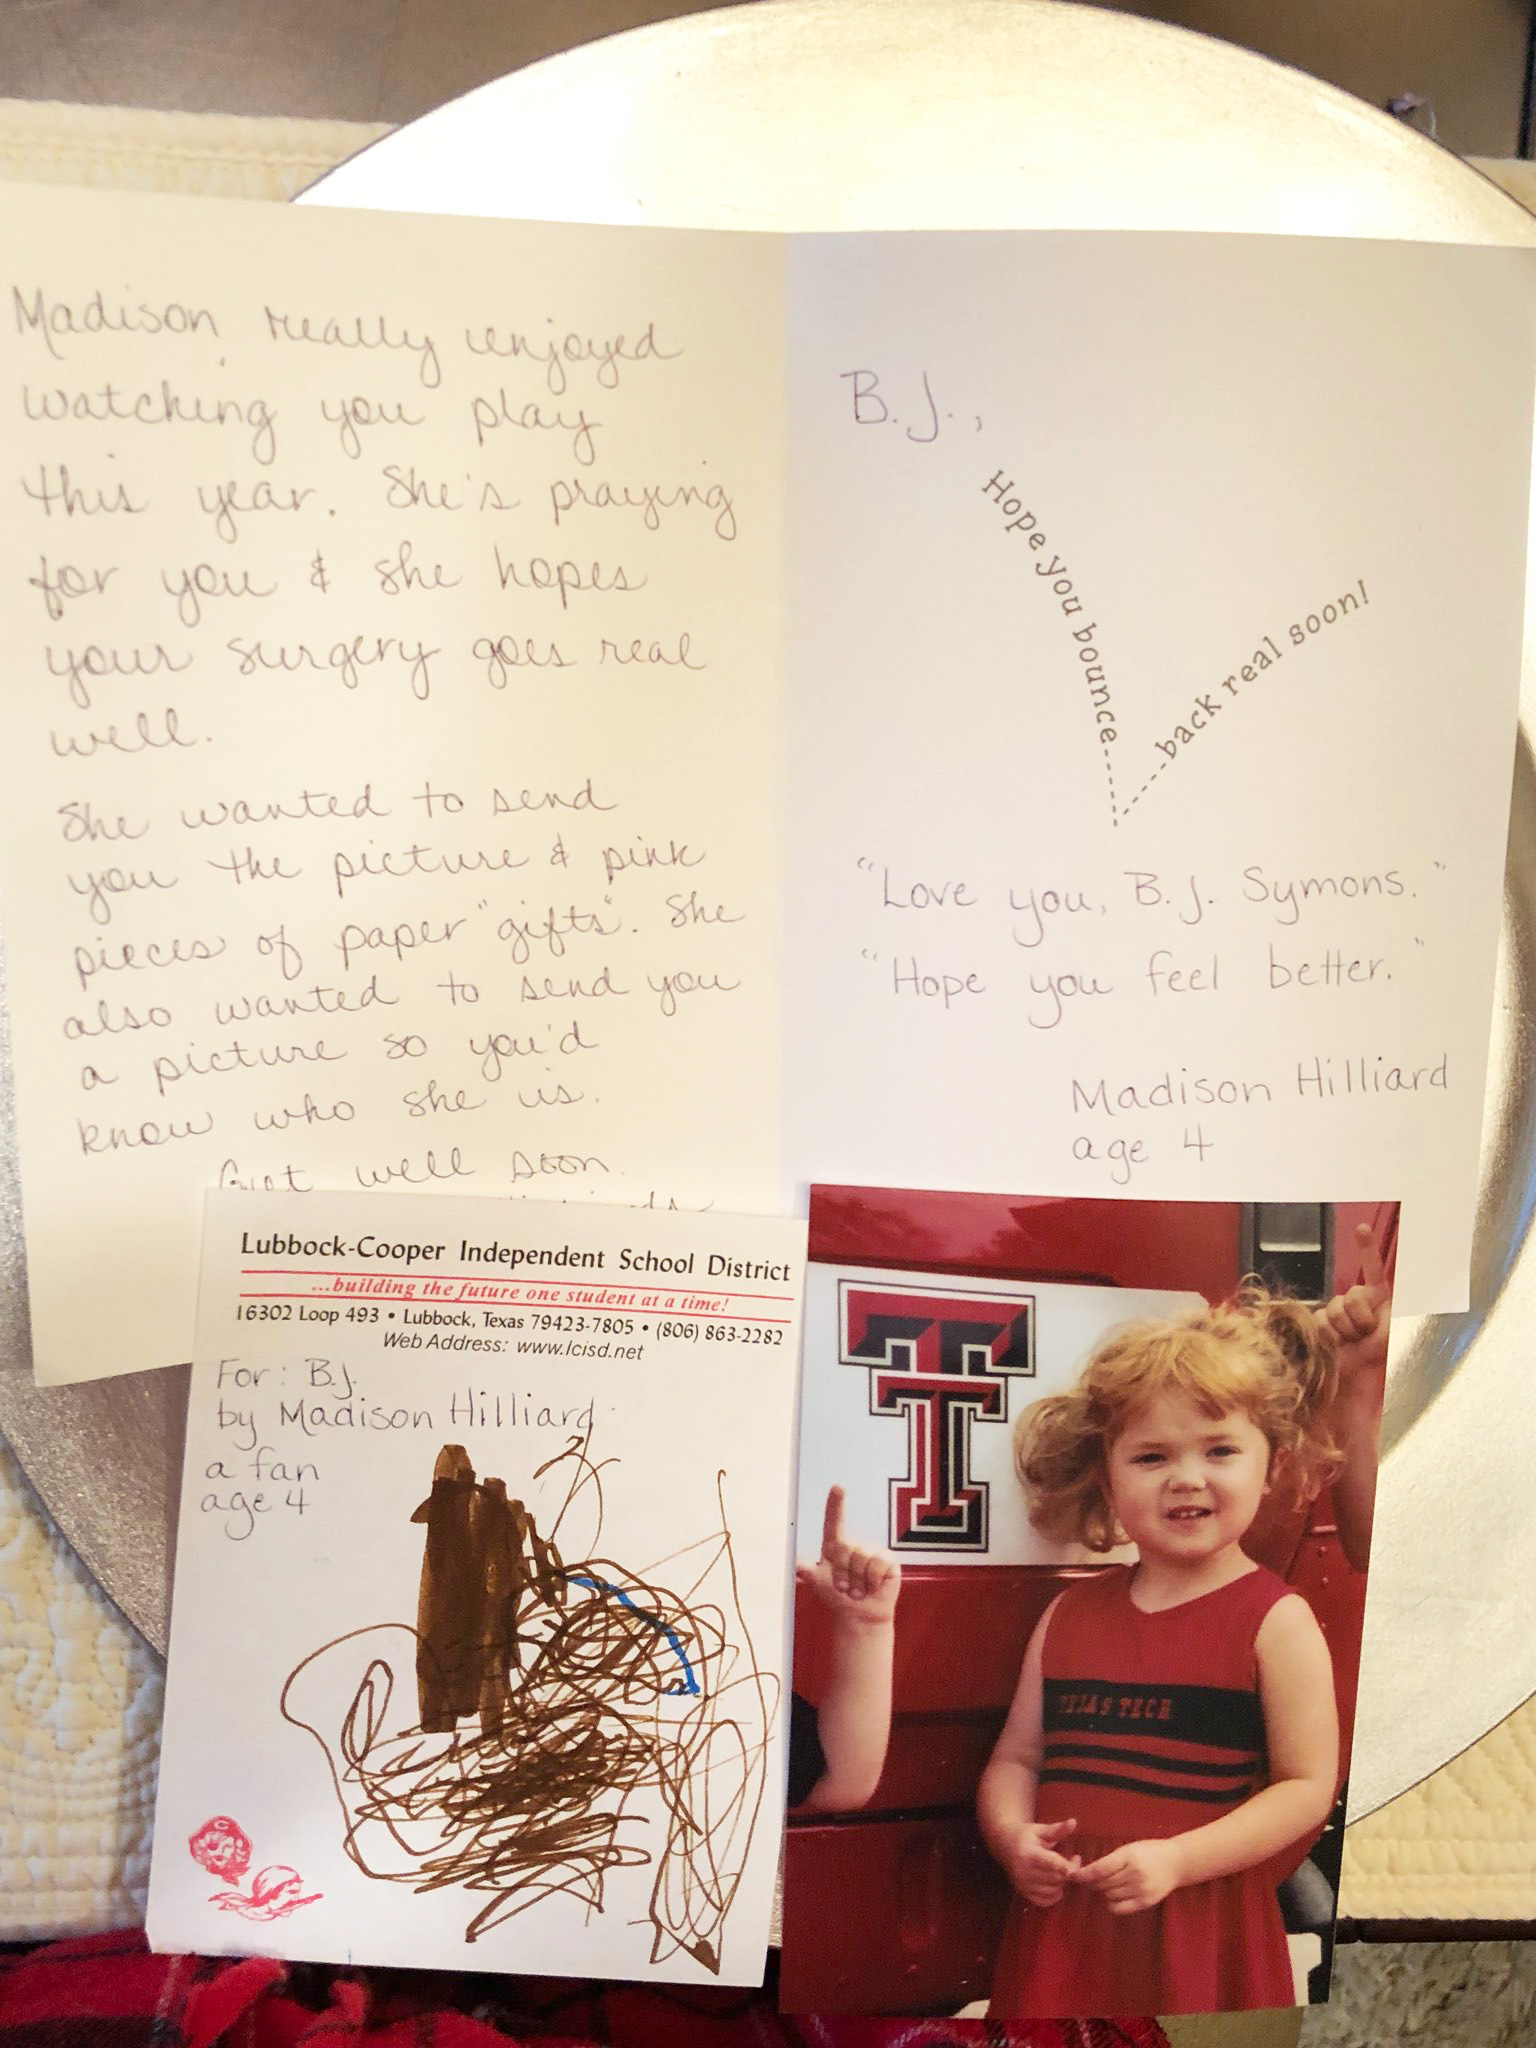 Madison really enjoyed
watching you play
this year. She's praying
for you & she hopes
your surgery goes real
well.
She wanted to send
you the picture & pink
pieces of paper "gifts". She
also wanted to send you
a picture so you'd
know who she is.
Get well soon.
B.J.,
Hope you bounce------
-----back real soon!
"Love you, B.J. Symons."
"Hope you feel better."
Madison Hilliard
age 4
Lubbock-Cooper Independent School District
...building the future one student at a time!
16302 Loop 493 • Lubbock, Texas 79423-7805 • (806) 863-2282
Web Address: www.lcisd.net
For: B.J.
by Madison Hilliard
a fan
age 4
C
T
T
TEXAS TECH